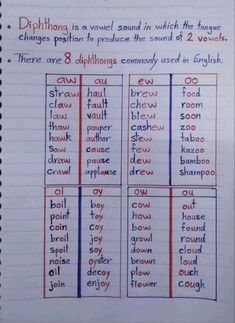 Diphthong is a vowel sound in which the tongue
changes position to produce the sound of 2 vowels.
There are 8 diphthongs commonly used in English.
aw au ew oo
straw haul brew food
claw fault chew room
law vault blew soon
thaw pauper cashew zoo
hawk author stew taboo
saw cause few kazoo
paw pause dew bamboo
crawl applause drew shampoo
oi oy ow ou
boil boy cow out
point toy how house
coin coy bow found
broil joy growl round
spoil soy down cloud
noise oyster brown loud
oil decoy plow ouch
join enjoy flower cough